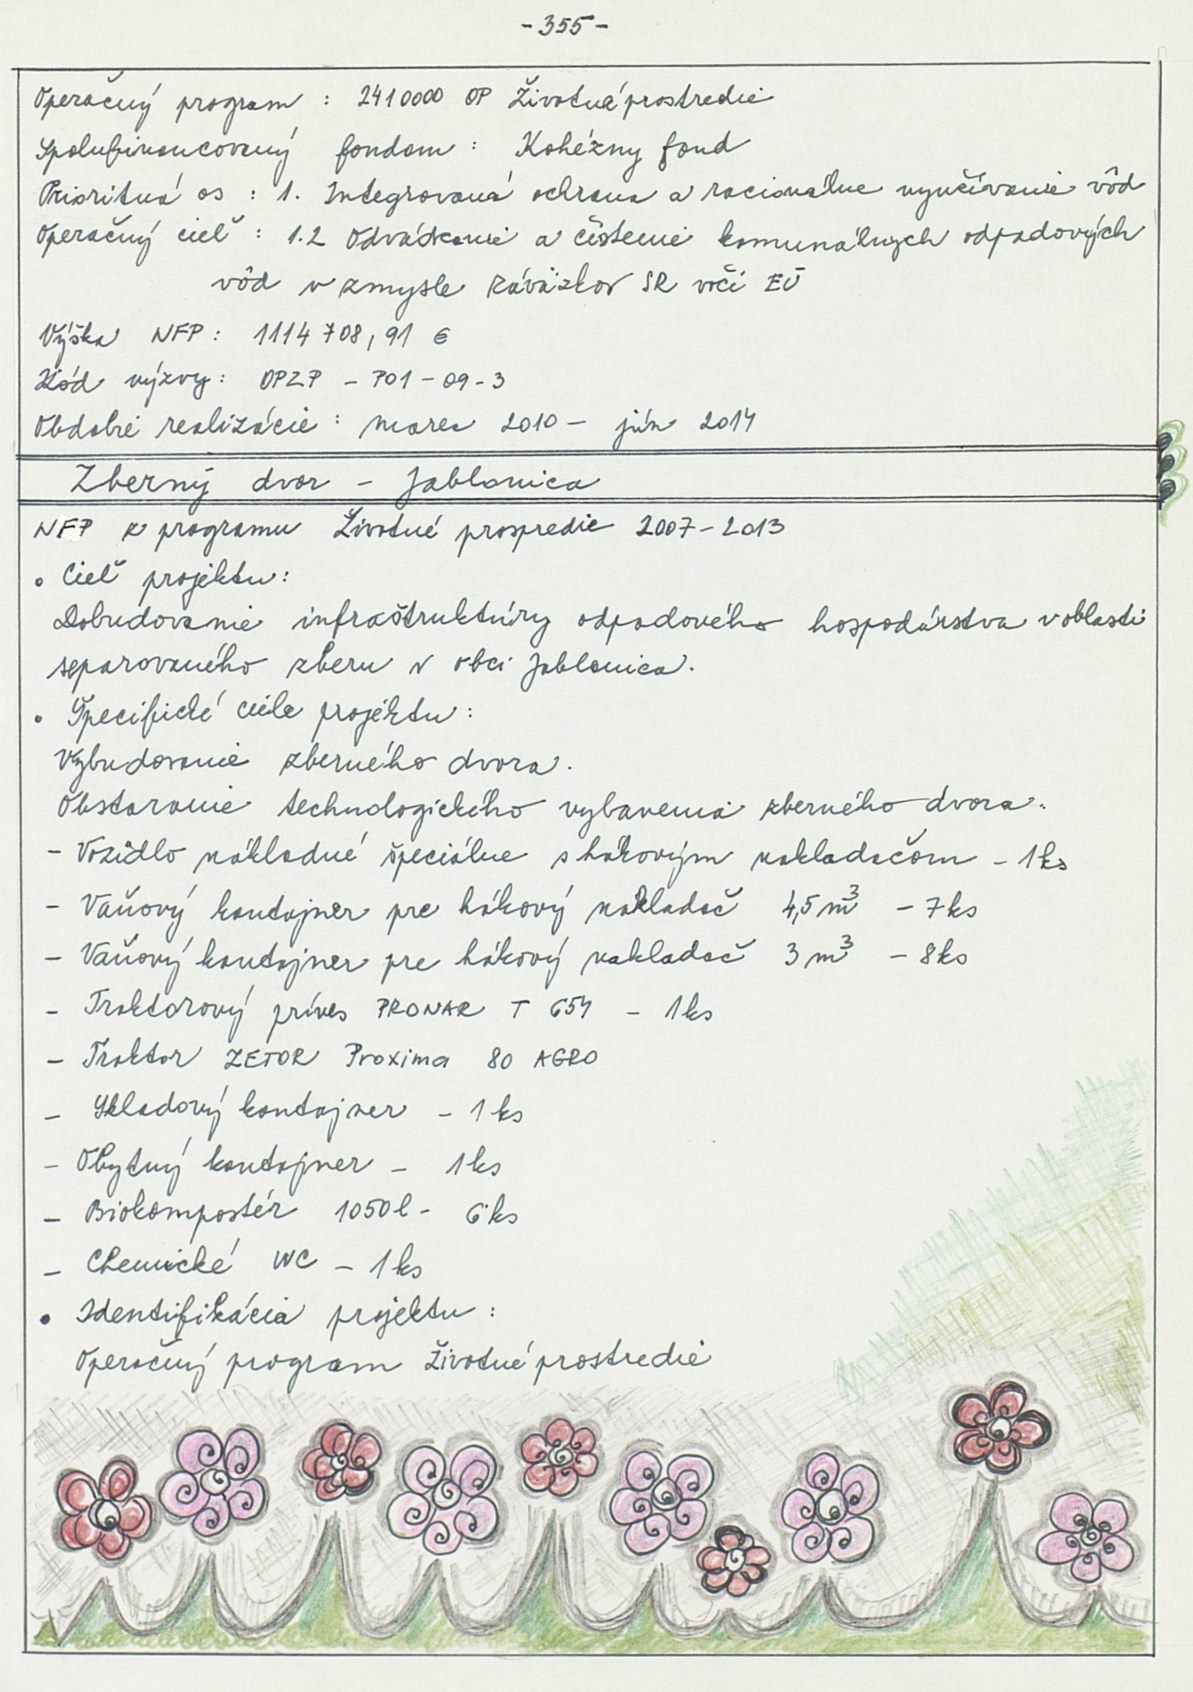 - 355 -
Operačný program : 2410000 OP Životné prostredie
Spolufinancovaný fondom : Kohézny fond
Prioritná os : 1. Integrovaná ochrana a racionálne využívanie vôd
Operačný cieľ : 1.2 Odvádzanie a čistenie komunálnych odpadových
vôd v zmysle záväzkov SR voči EÚ
Výška NFP : 1114 708,91 €
Kód výzvy : OPZP - PO1 - 09 - 3
Obdobie realizácie : marec 2010 - jún 2014
Zberný dvor - Jablonica
NFP z programu Životné prospredie 2007 - 2013
• Cieľ projektu :
Dobudovanie infraštruktúry odpadového hospodárstva v oblasti
separovaného zberu v obci Jablonica.
• Špecifické ciele projektu :
Vybudovanie zberného dvora.
Obstaranie technologického vybavenia zberného dvora.
- Vozidlo nákladné špeciálne s hákovým nakladačom - 1 ks
- Vaňový kontajner pre hákový nakladač 4,5 m³ - 7 ks
- Vaňový kontajner pre hákový nakladač 3 m³ - 8 ks
- Traktorový príves PRONAR T 654 - 1 ks
- Traktor ZETOR Proxima 80 AGRO
- Skladový kontajner - 1 ks
- Obytný kontajner - 1 ks
- Biokompostér 1050 l - 6 ks
- Chemické WC - 1 ks
• Identifikácia projektu :
Operačný program Životné prostredie